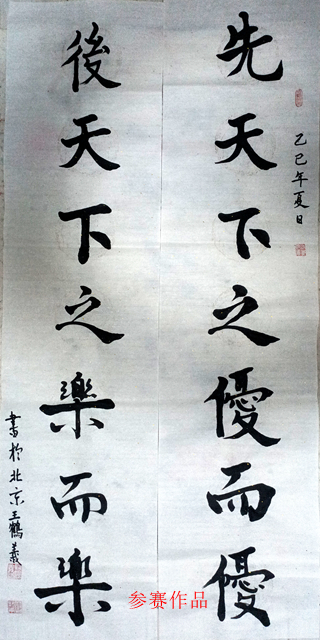 先天下之優而優
乙巳年夏日
後天下之樂而樂
書於北京王鶴義
参赛作品